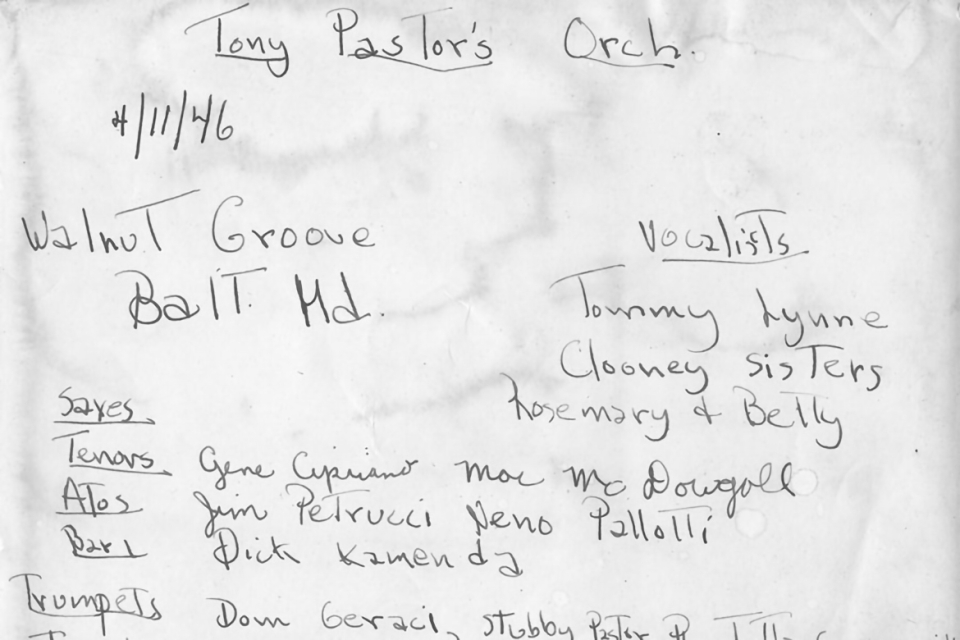 Tony Pastor's Orch.
4/11/46
Walnut Groove
Balt. Md.
Vocalists
Tommy Lynne
Clooney Sisters
Rosemary & Betty
Saxes
Tenors Gene Cipriano Mac McDougall
Altos Jim Petrucci Neno Pallotti
Bari Dick Kamenda
Trumpets Dom Geraci, Stubby Pastor